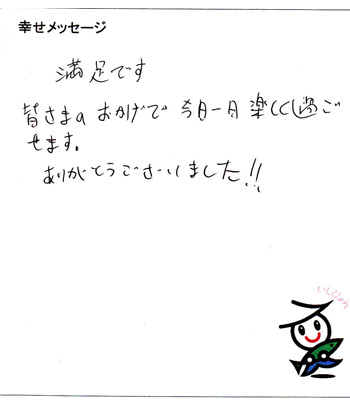 幸せメッセージ
満足です
皆さまのおかげで今月一月楽しく過ご
せます。
ありがとうございました!!